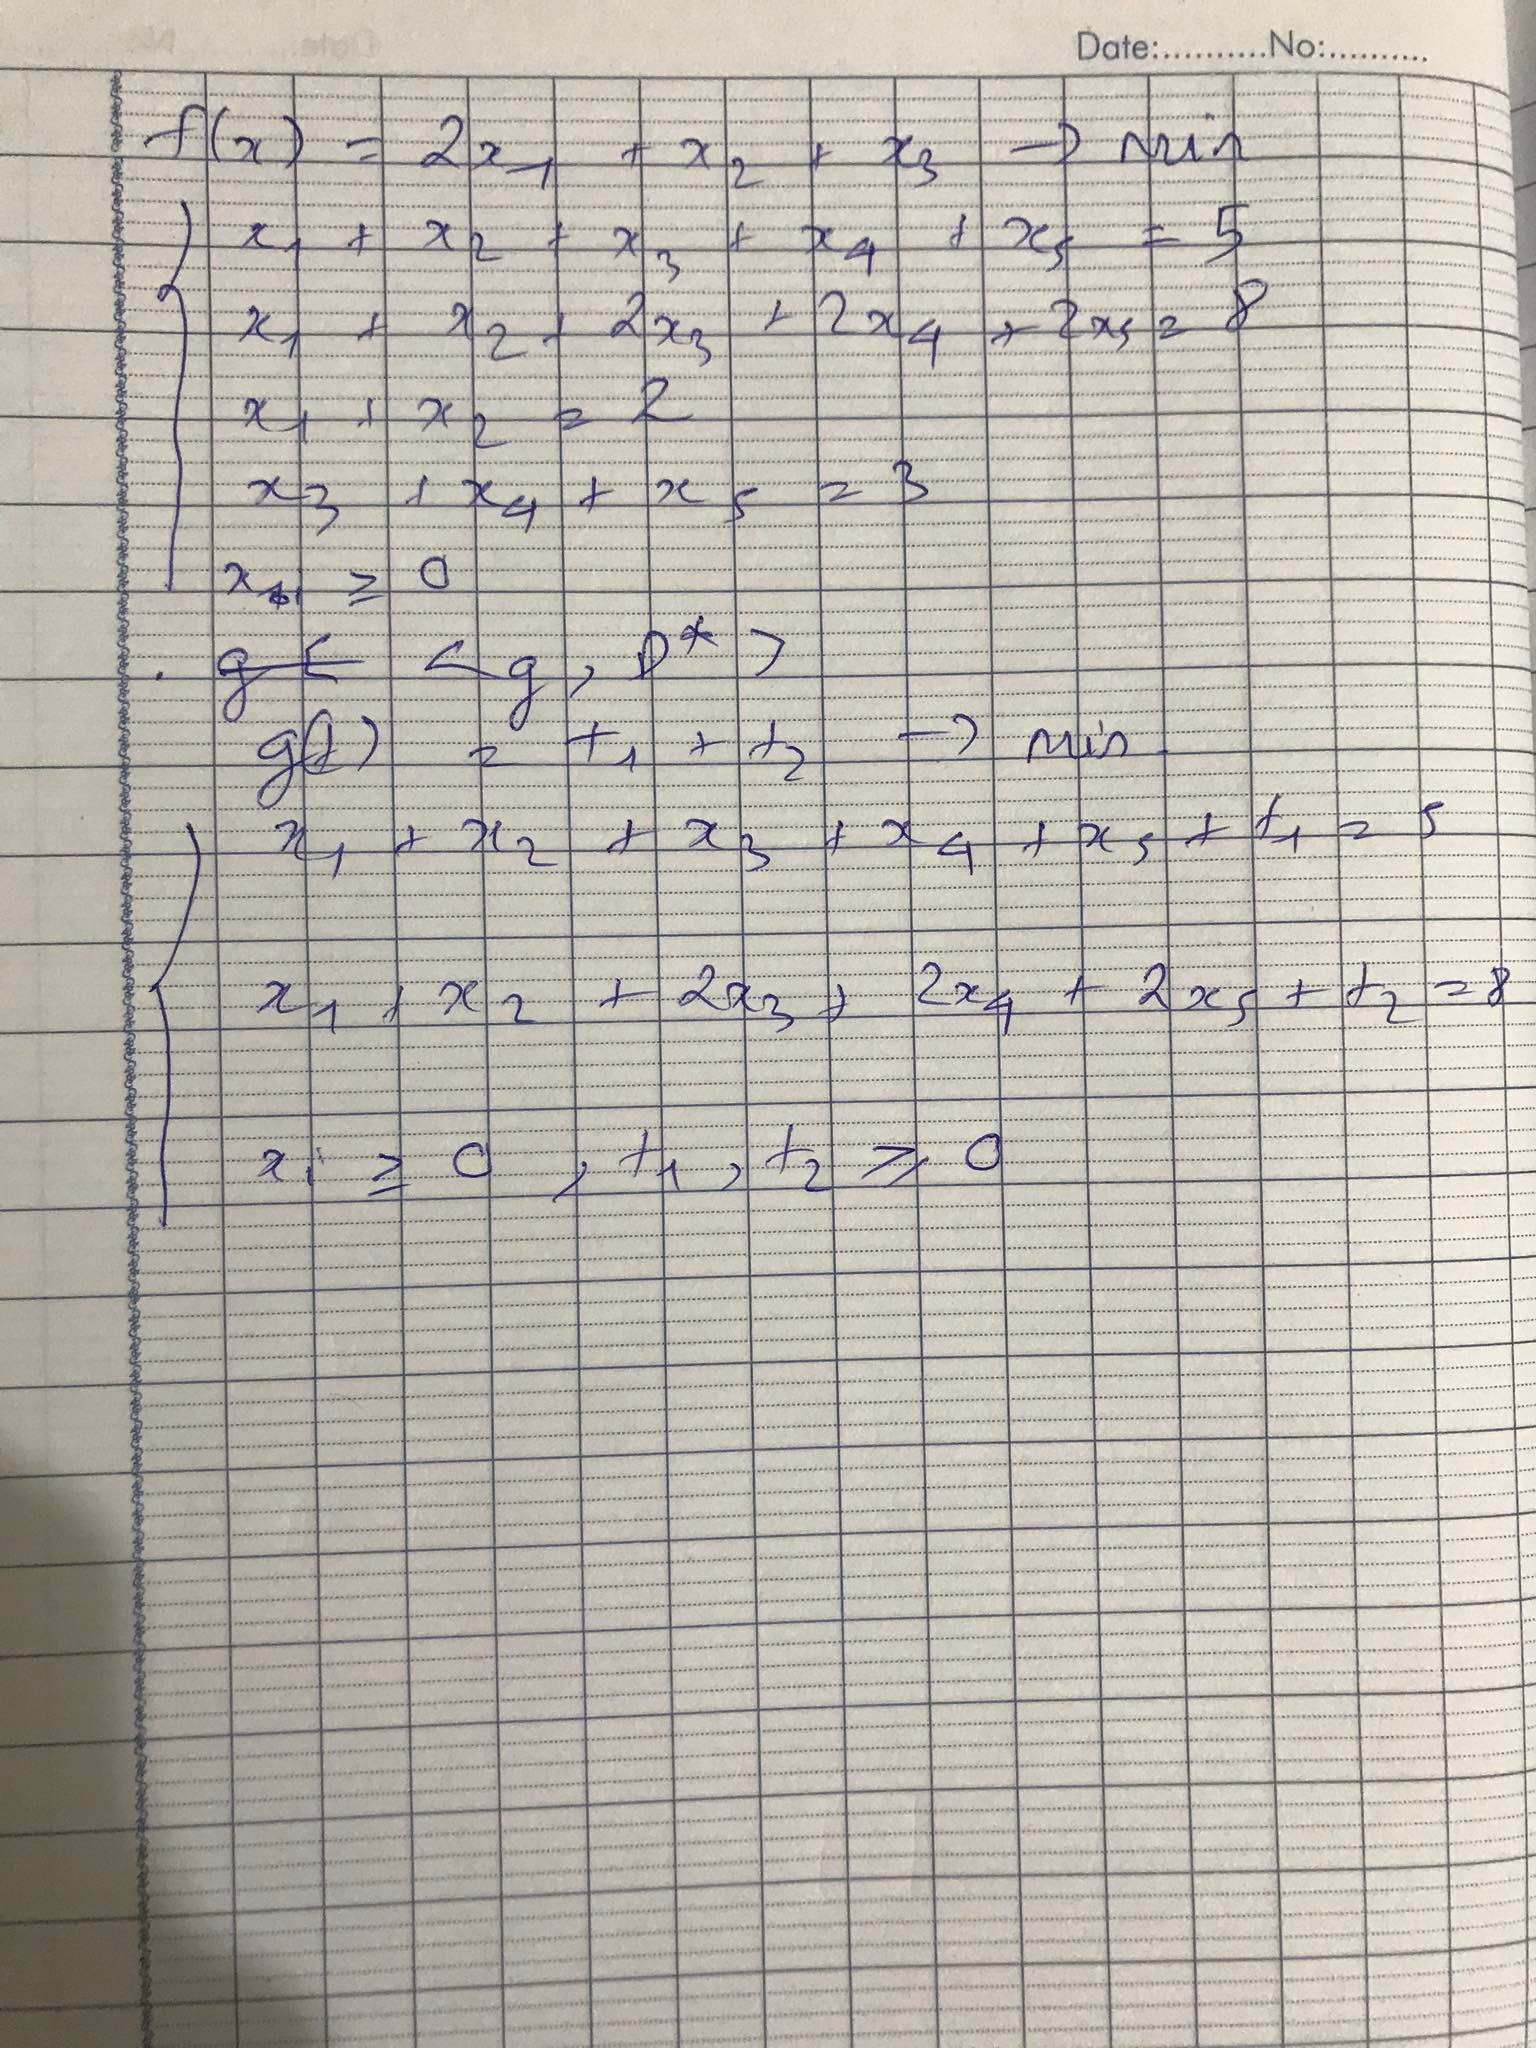 Date:...........No:..........
f(x) = 2x₁ + x₂ + x₃ → min
x₁ + x₂ + x₃ + x₄ + x₅ = 5
x₁ + x₂ + 2x₃ + 2x₄ + 2x₅ = 8
x₁ + x₂ = 2
x₃ + x₄ + x₅ = 3
xᵢ ≥ 0
. <g, D* >
g(t) = t₁ + t₂ → min
x₁ + x₂ + x₃ + x₄ + x₅ + t₁ = 5
x₁ + x₂ + 2x₃ + 2x₄ + 2x₅ + t₂ = 8
xᵢ ≥ 0 , t₁ , t₂ ≥ 0